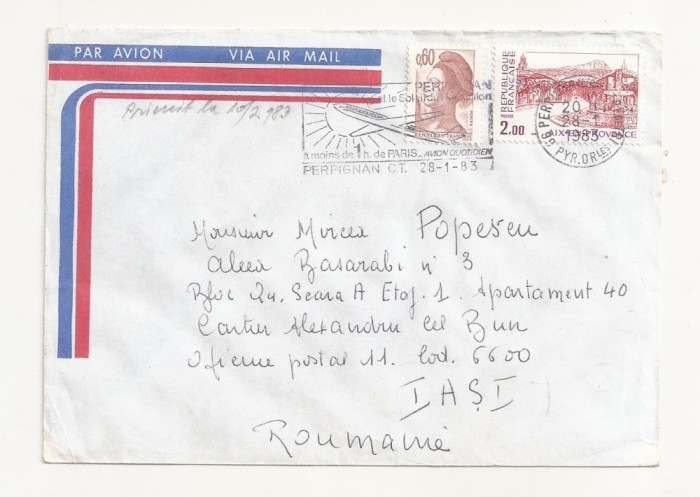 PAR AVION VIA AIR MAIL
0,60
REPUBLIQUE FRANÇAISE
2.00
AIX EN PROVENCE
PERPIGNAN
et le Soleil du Roussillon
à moins de 1 h. de PARIS... AVION QUOTIDIEN
PERPIGNAN C.T. 28-1-83
20 H
28-1
1983
PYR. OR LES
la 10/2 983
Monsieur Mircea Popescu
Aleea Basarabi n° 3
Bloc 2a, Scara A Etaj. 1. Apartament 40
Cartier Alexandru cel Bun
Oficiu postal 11. Cod. 6600
IAȘI
Roumanie